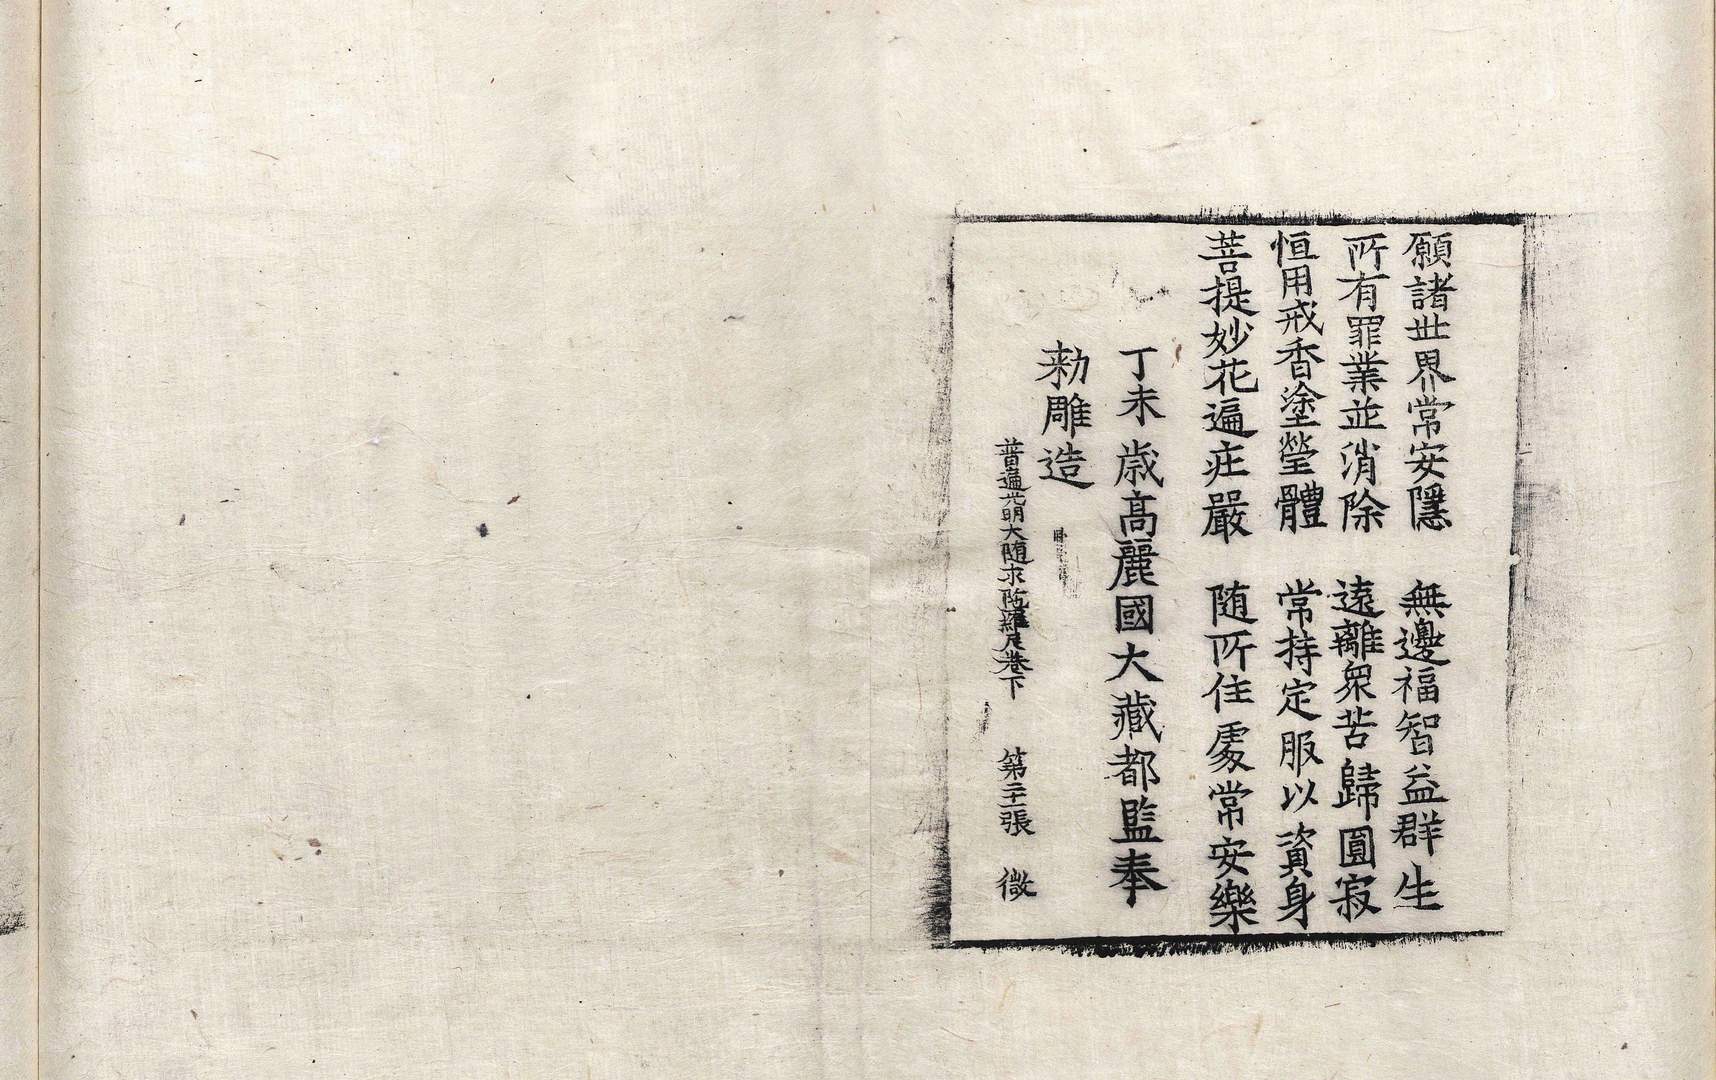 願諸世界常安隱　無邊福智益群生
所有罪業並消除　遠離衆苦歸圓寂
恒用戒香塗瑩體　常持定服以資身
菩提妙花遍庄嚴　随所住處常安樂
丁未歳高麗國大藏都監奉
勑雕造
普遍光明大随求陁羅尼卷下　第二十一張　微